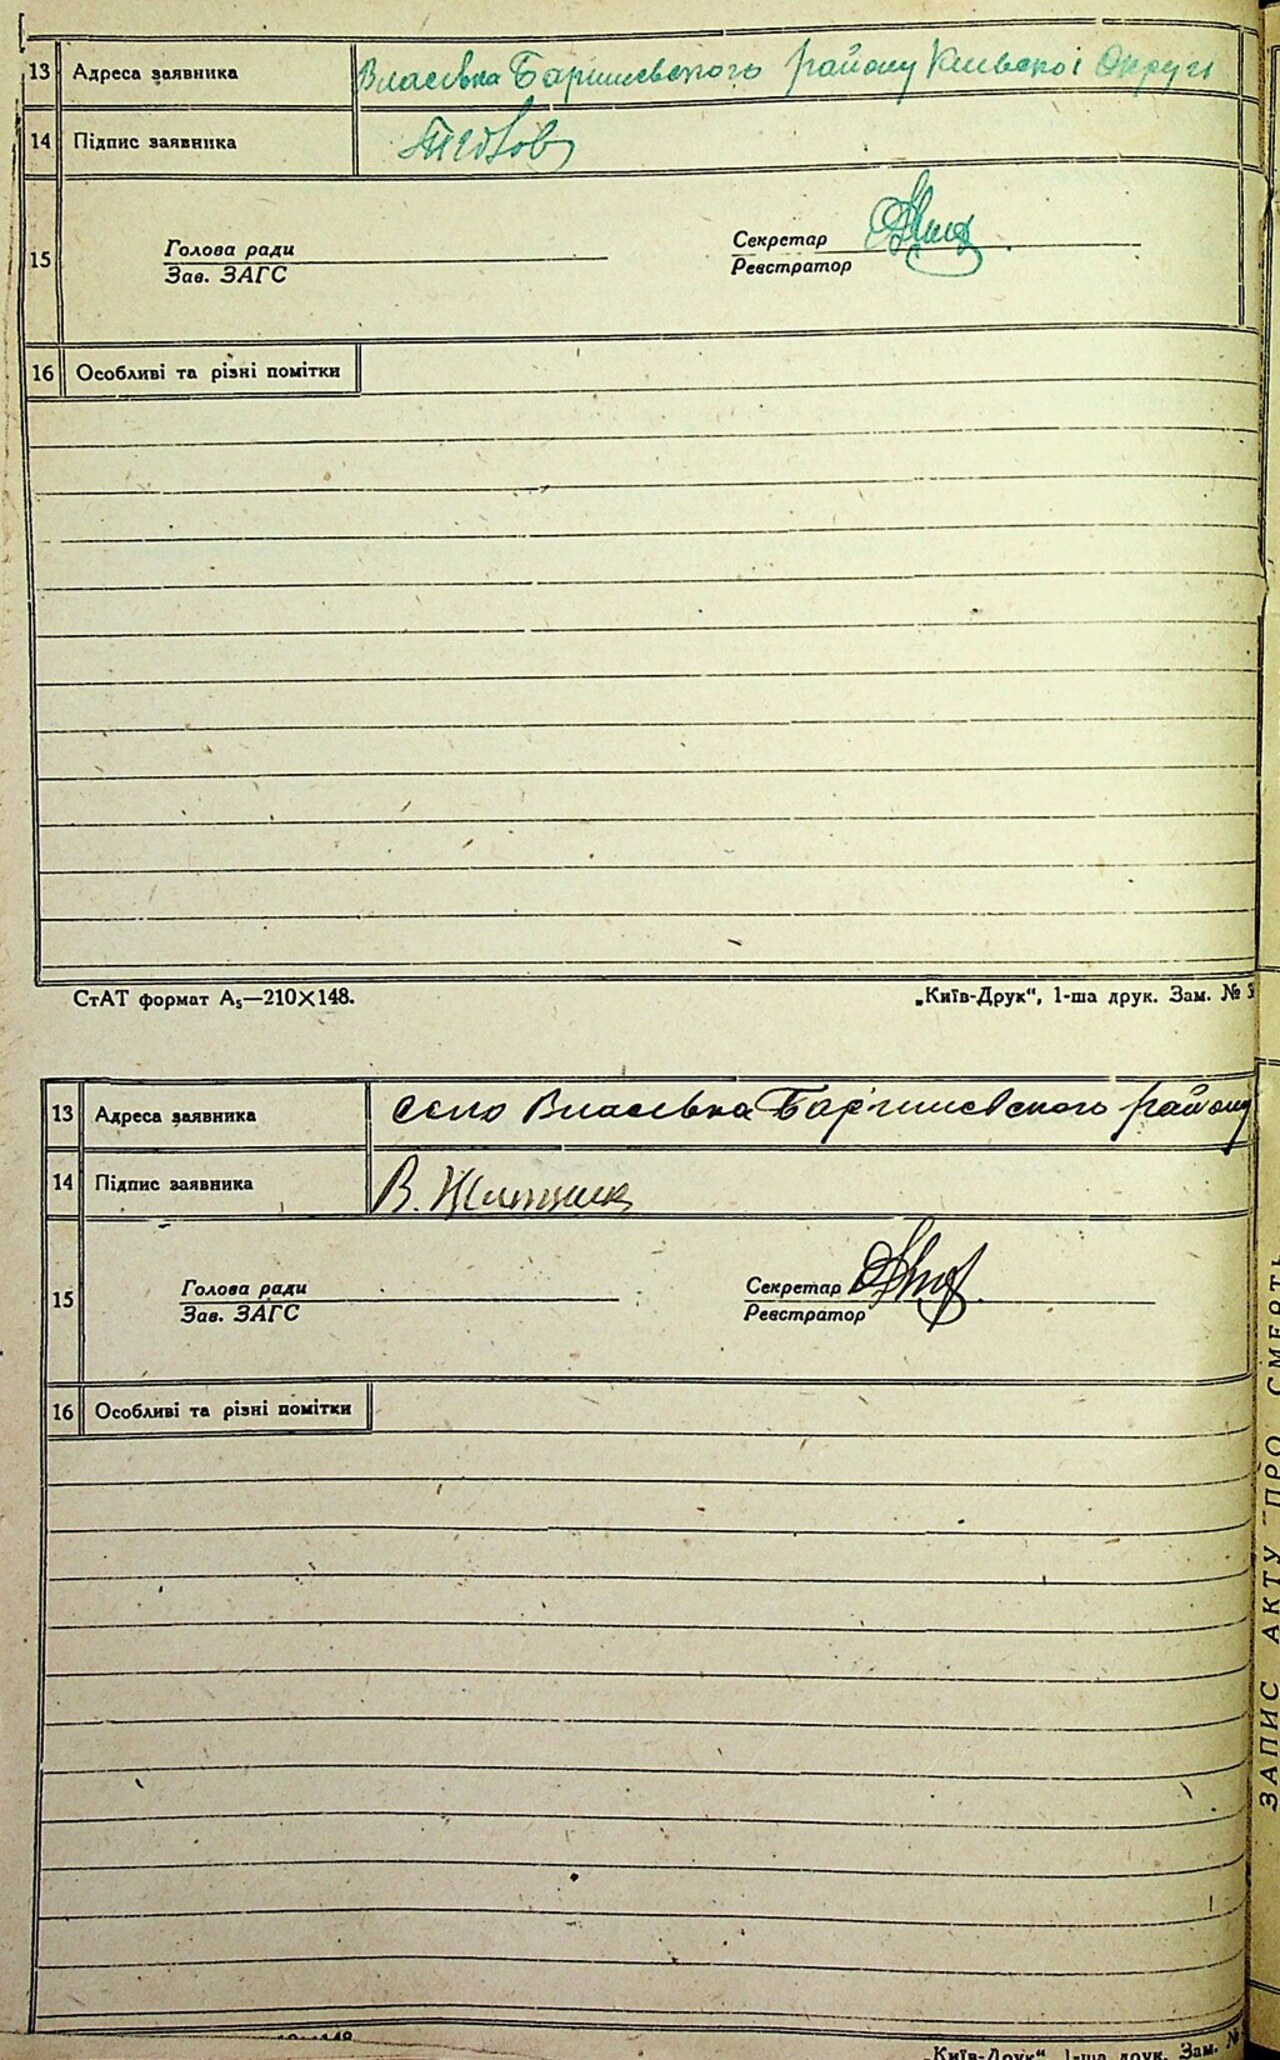 13 Адреса заявника Власівка Баришевского району Киівскоі Округи
14 Підпис заявника
15 Голова ради Секретар
Зав. ЗАГС Реєстратор
16 Особливі та різні помітки
СтАТ формат А₅—210×148. „Київ-Друк“, 1-ша друк. Зам. № 3
13 Адреса заявника село Власівка Баришевского району
14 Підпис заявника В. Житник
15 Голова ради Секретар
Зав. ЗАГС Реєстратор
16 Особливі та різні помітки
„Київ-Друк“, 1-ша друк. Зам. №
ЗАПИС АКТУ ПРО СМЕРТЬ